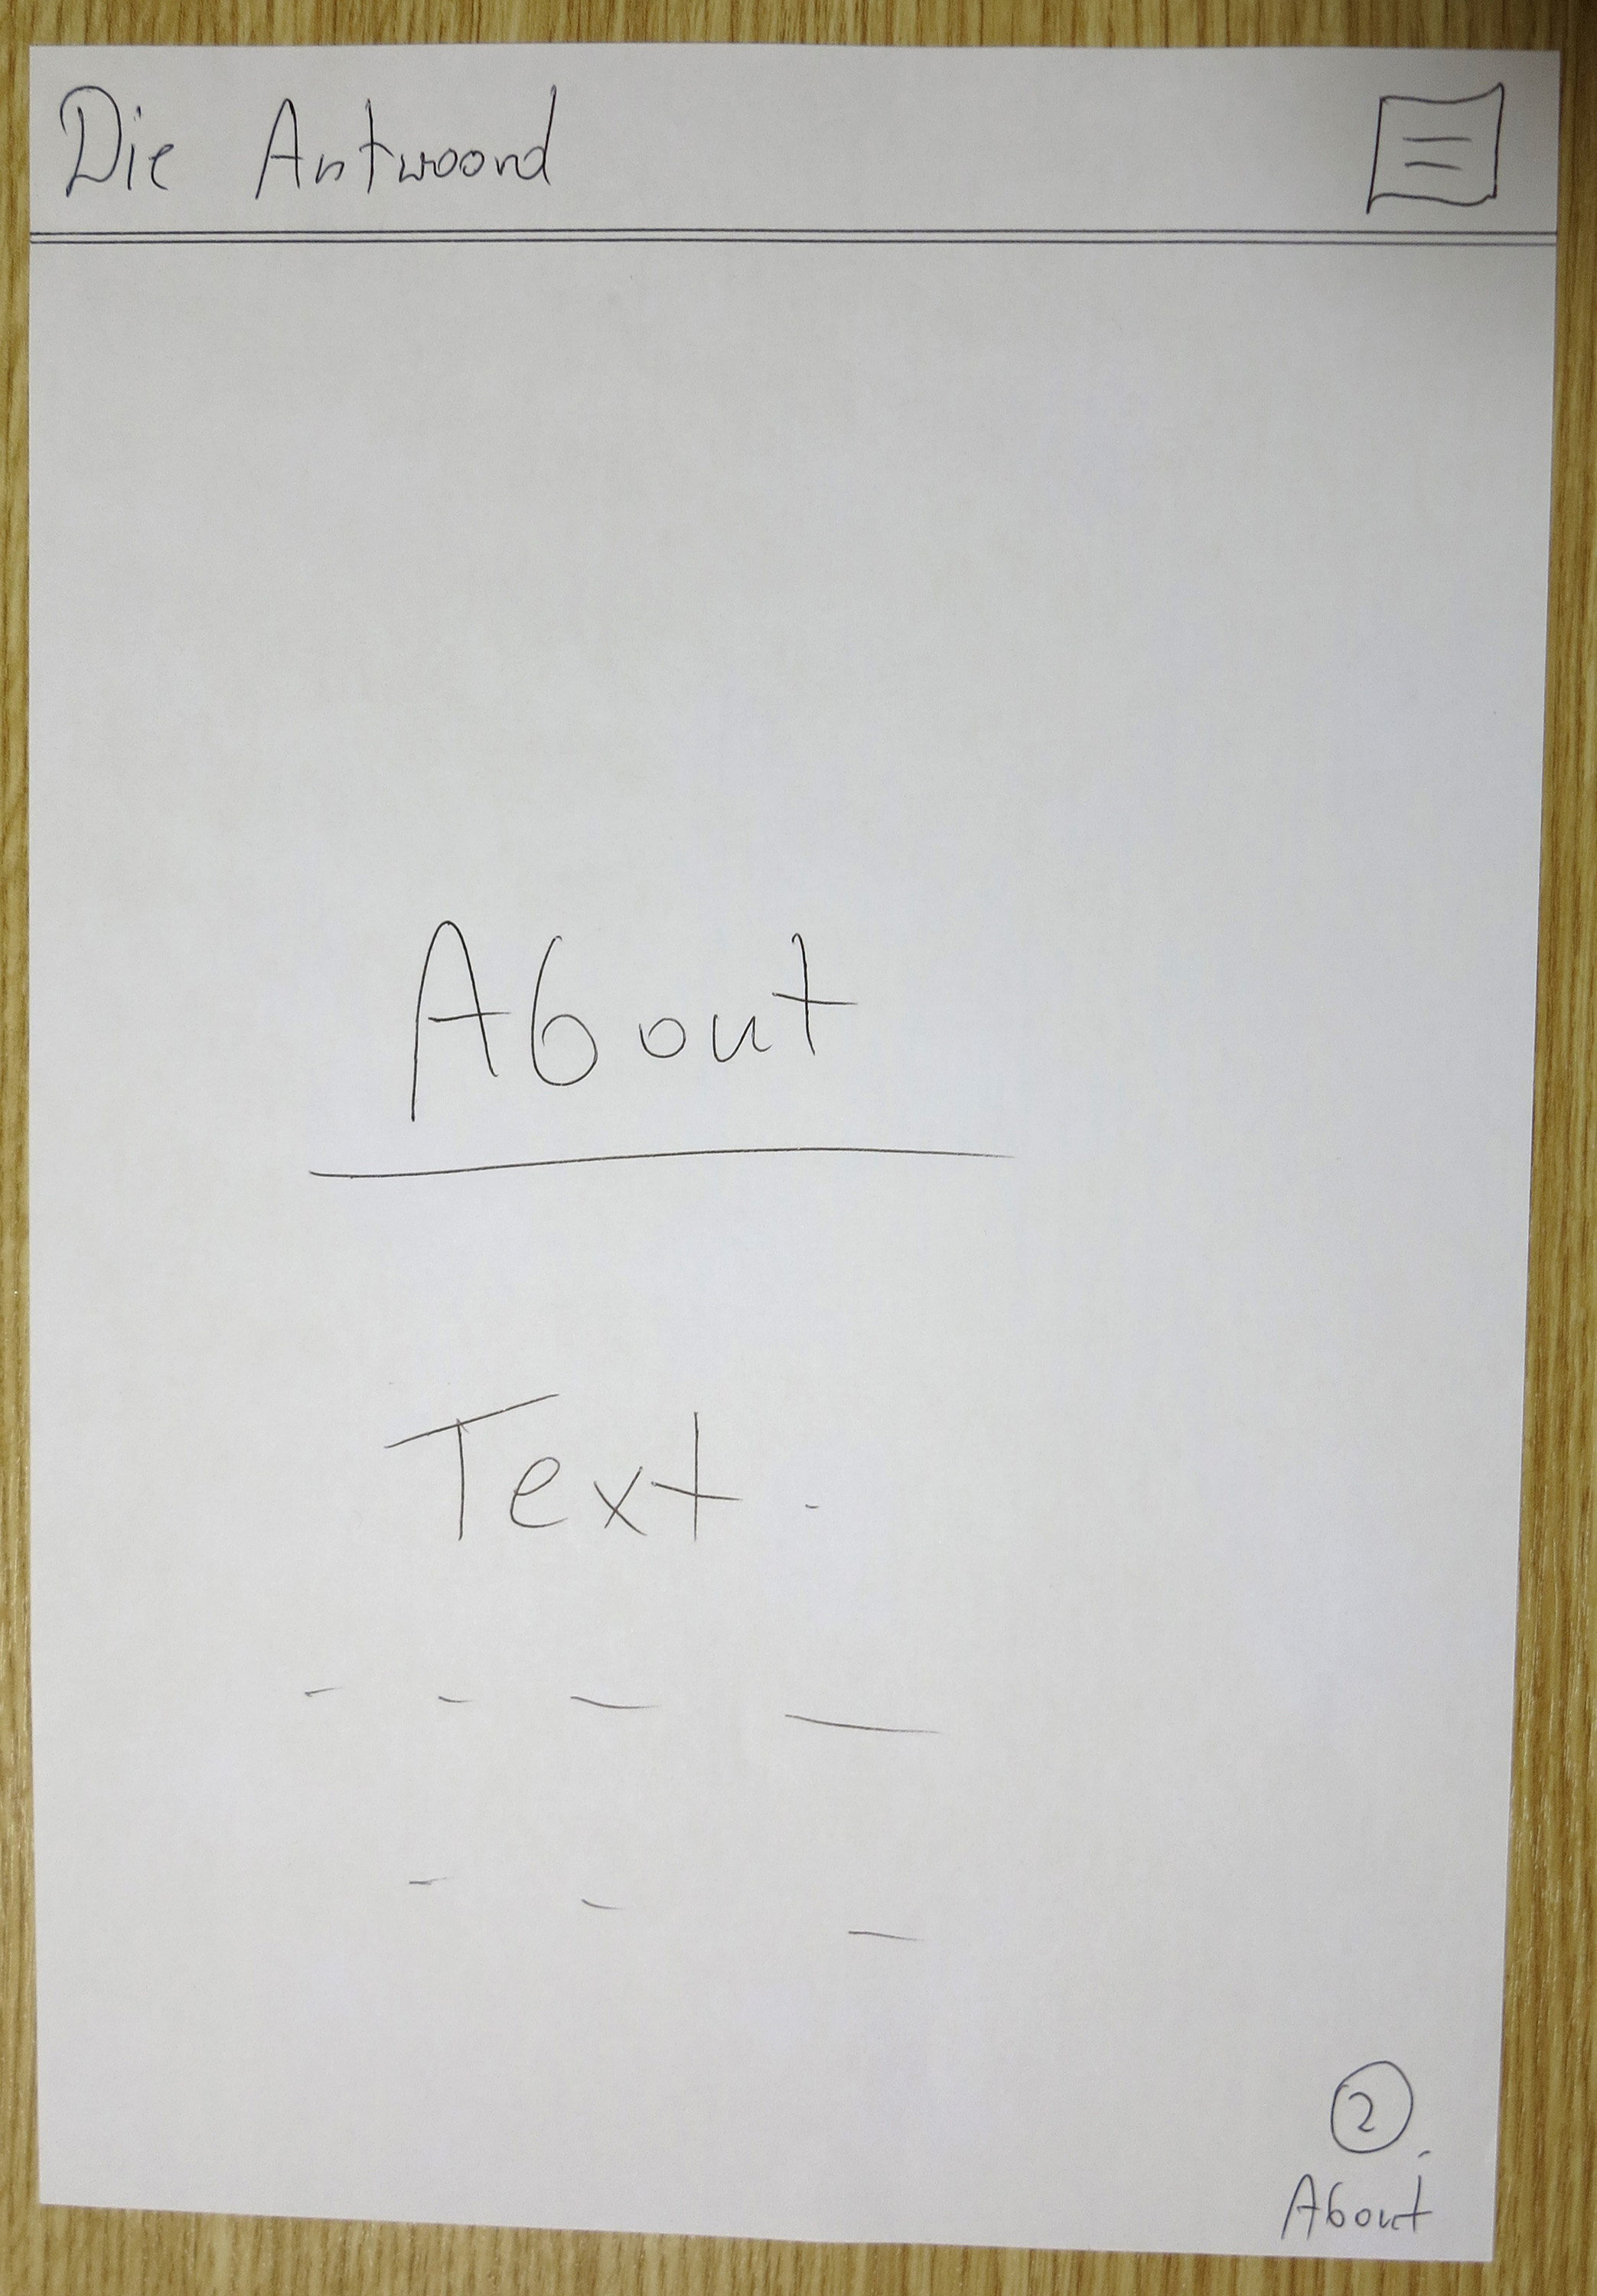 Die Antwoord
About
Text
2
About